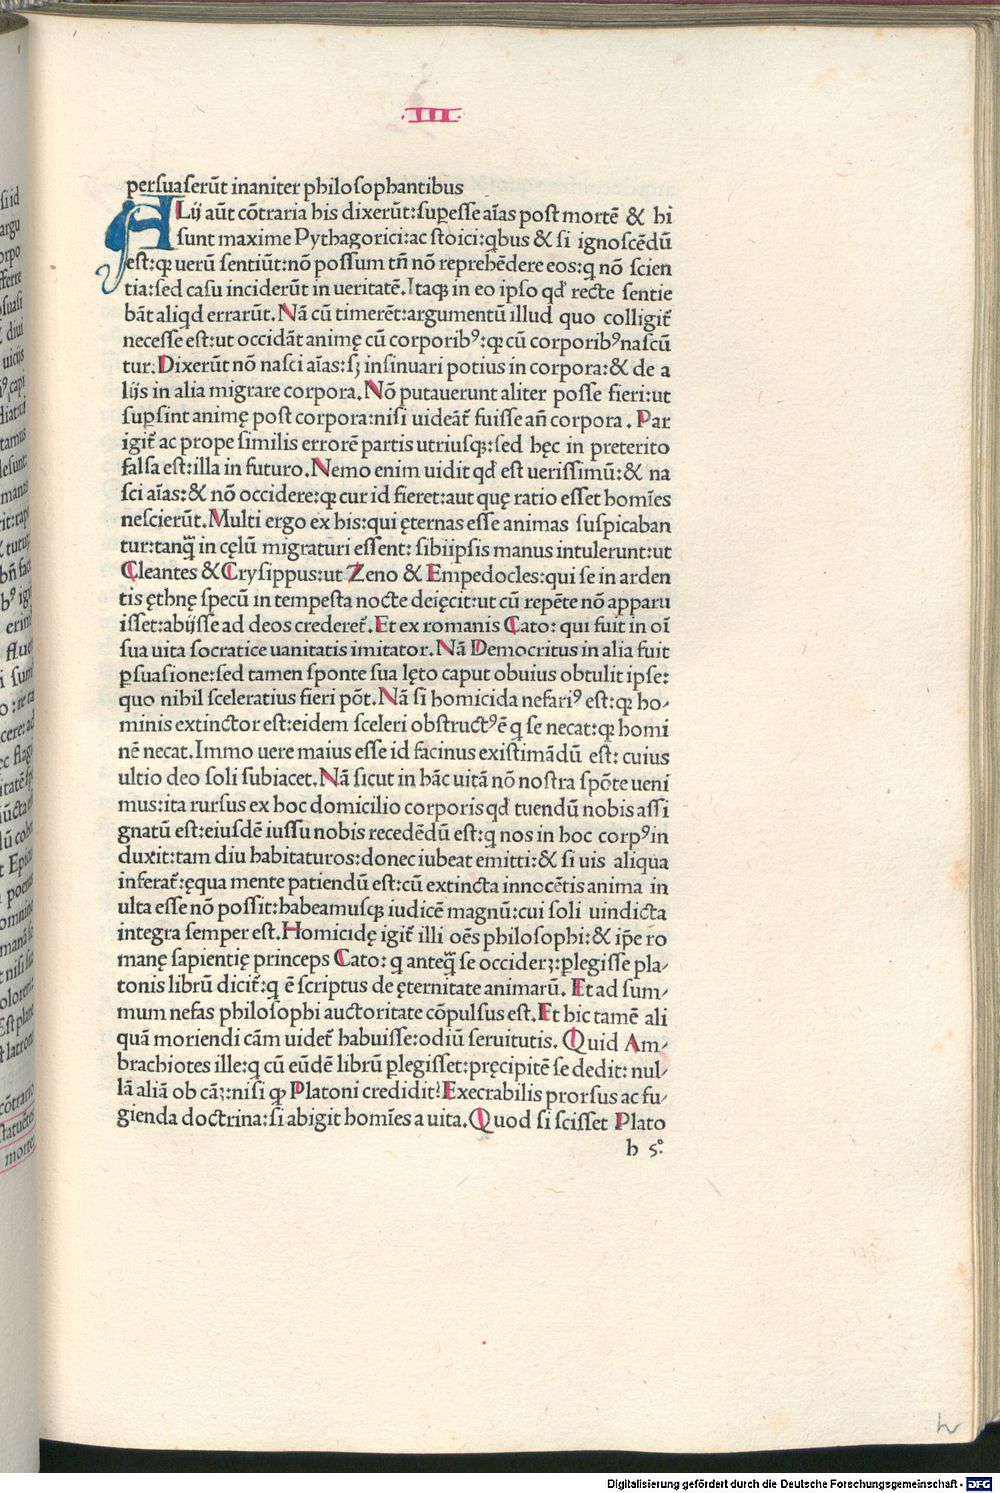 ·III·
persuaserūt inaniter philosophantibus
ALij aūt cōtraria his dixerūt:supesse aīas post mortē & hi
sunt maxime Pythagorici:ac stoici:qbus & si ignoscēdū
est:qꝛ uerū sentiūt:nō possum tñ nō reprehēdere eos:q nō scien
tia:sed casu inciderūt in ueritatē. Itaqꝫ in eo ipso qđ recte sentie
bāt aliqd errarūt. Nā cū timerēt:argumentū illud quo colligit̄
necesse est:ut occidāt animę cū corporibꝰ:qꝛ cū corporibꝰ nascū
tur. Dixerūt nō nasci aīas:sꝫ insinuari potius in corpora:& de a
lijs in alia migrare corpora. Nō putauerunt aliter posse fieri:ut
supsint animę post corpora:nisi uideāt̄ fuisse añ corpora. Par
igit̄ ac prope similis errorē partis utriusqꝫ:sed hęc in preterito
falsa est:illa in futuro. Nemo enim uidit qđ est uerissimū:& na
sci aīas:& nō occidere:qꝛ cur id fieret:aut quę ratio esset homīes
nescierūt. Multi ergo ex his:qui ęternas esse animas suspicaban
tur:tanq̄ in cęlū migraturi essent: sibiipsis manus intulerunt:ut
Cleantes & Crysippus:ut Zeno & Empedocles:qui se in arden
tis ęthnę specū in tempesta nocte deięcit:ut cū repēte nō apparu
isset:abijsse ad deos crederet̄. Et ex romanis Cato: qui fuit in oī
sua uita socratice uanitatis imitator. Nā Democritus in alia fuit
ꝑsuasione:sed tamen sponte sua lęto caput obuius obtulit ipse:
quo nihil sceleratius fieri pōt. Nā si homicida nefariꝰ est:qꝛ ho⸗
minis extinctor est:eidem sceleri obstructꝰ ē q se necat:qꝛ homi
nē necat. Immo uere maius esse id facinus existimādū est: cuius
ultio deo soli subiacet. Nā sicut in hāc uitā nō nostra spōte ueni
mus:ita rursus ex hoc domicilio corporis qđ tuendū nobis assi
gnatū est:eiusdē iussu nobis recedēdū est:q nos in hoc corpꝰ in
duxit:tam diu habitaturos:donec iubeat emitti:& si uis aliqua
inferat̄:ęqua mente patiendū est:cū extincta innocētis anima in
ulta esse nō possit:habeamusqꝫ iudicē magnū:cui soli uindicta
integra semper est. Homicidę igit̄ illi oēs philosophi:& ip̄e ro
manę sapientię princeps Cato: q anteq̄ se occiderꝫ:ꝑlegisse pla⸗
tonis librū dicit̄:q ē scriptus de ęternitate animarū. Et ad sum⸗
mum nefas philosophi auctoritate cōpulsus est. Et hic tamē ali
quā moriendi cām uidet̄ habuisse:odiū seruitutis. Quid Am⸗
brachiotes ille:q cū eūdē librū ꝑlegisset:pręcipitē se dedit: nul⸗
lā aliā ob cāꝫ:nisi qꝛ Platoni credidit? Execrabilis prorsus ac fu⸗
gienda doctrina:si abigit homīes a uita. Quod si scisset Plato
b 5.
Digitalisierung gefördert durch die Deutsche Forschungsgemeinschaft - DFG